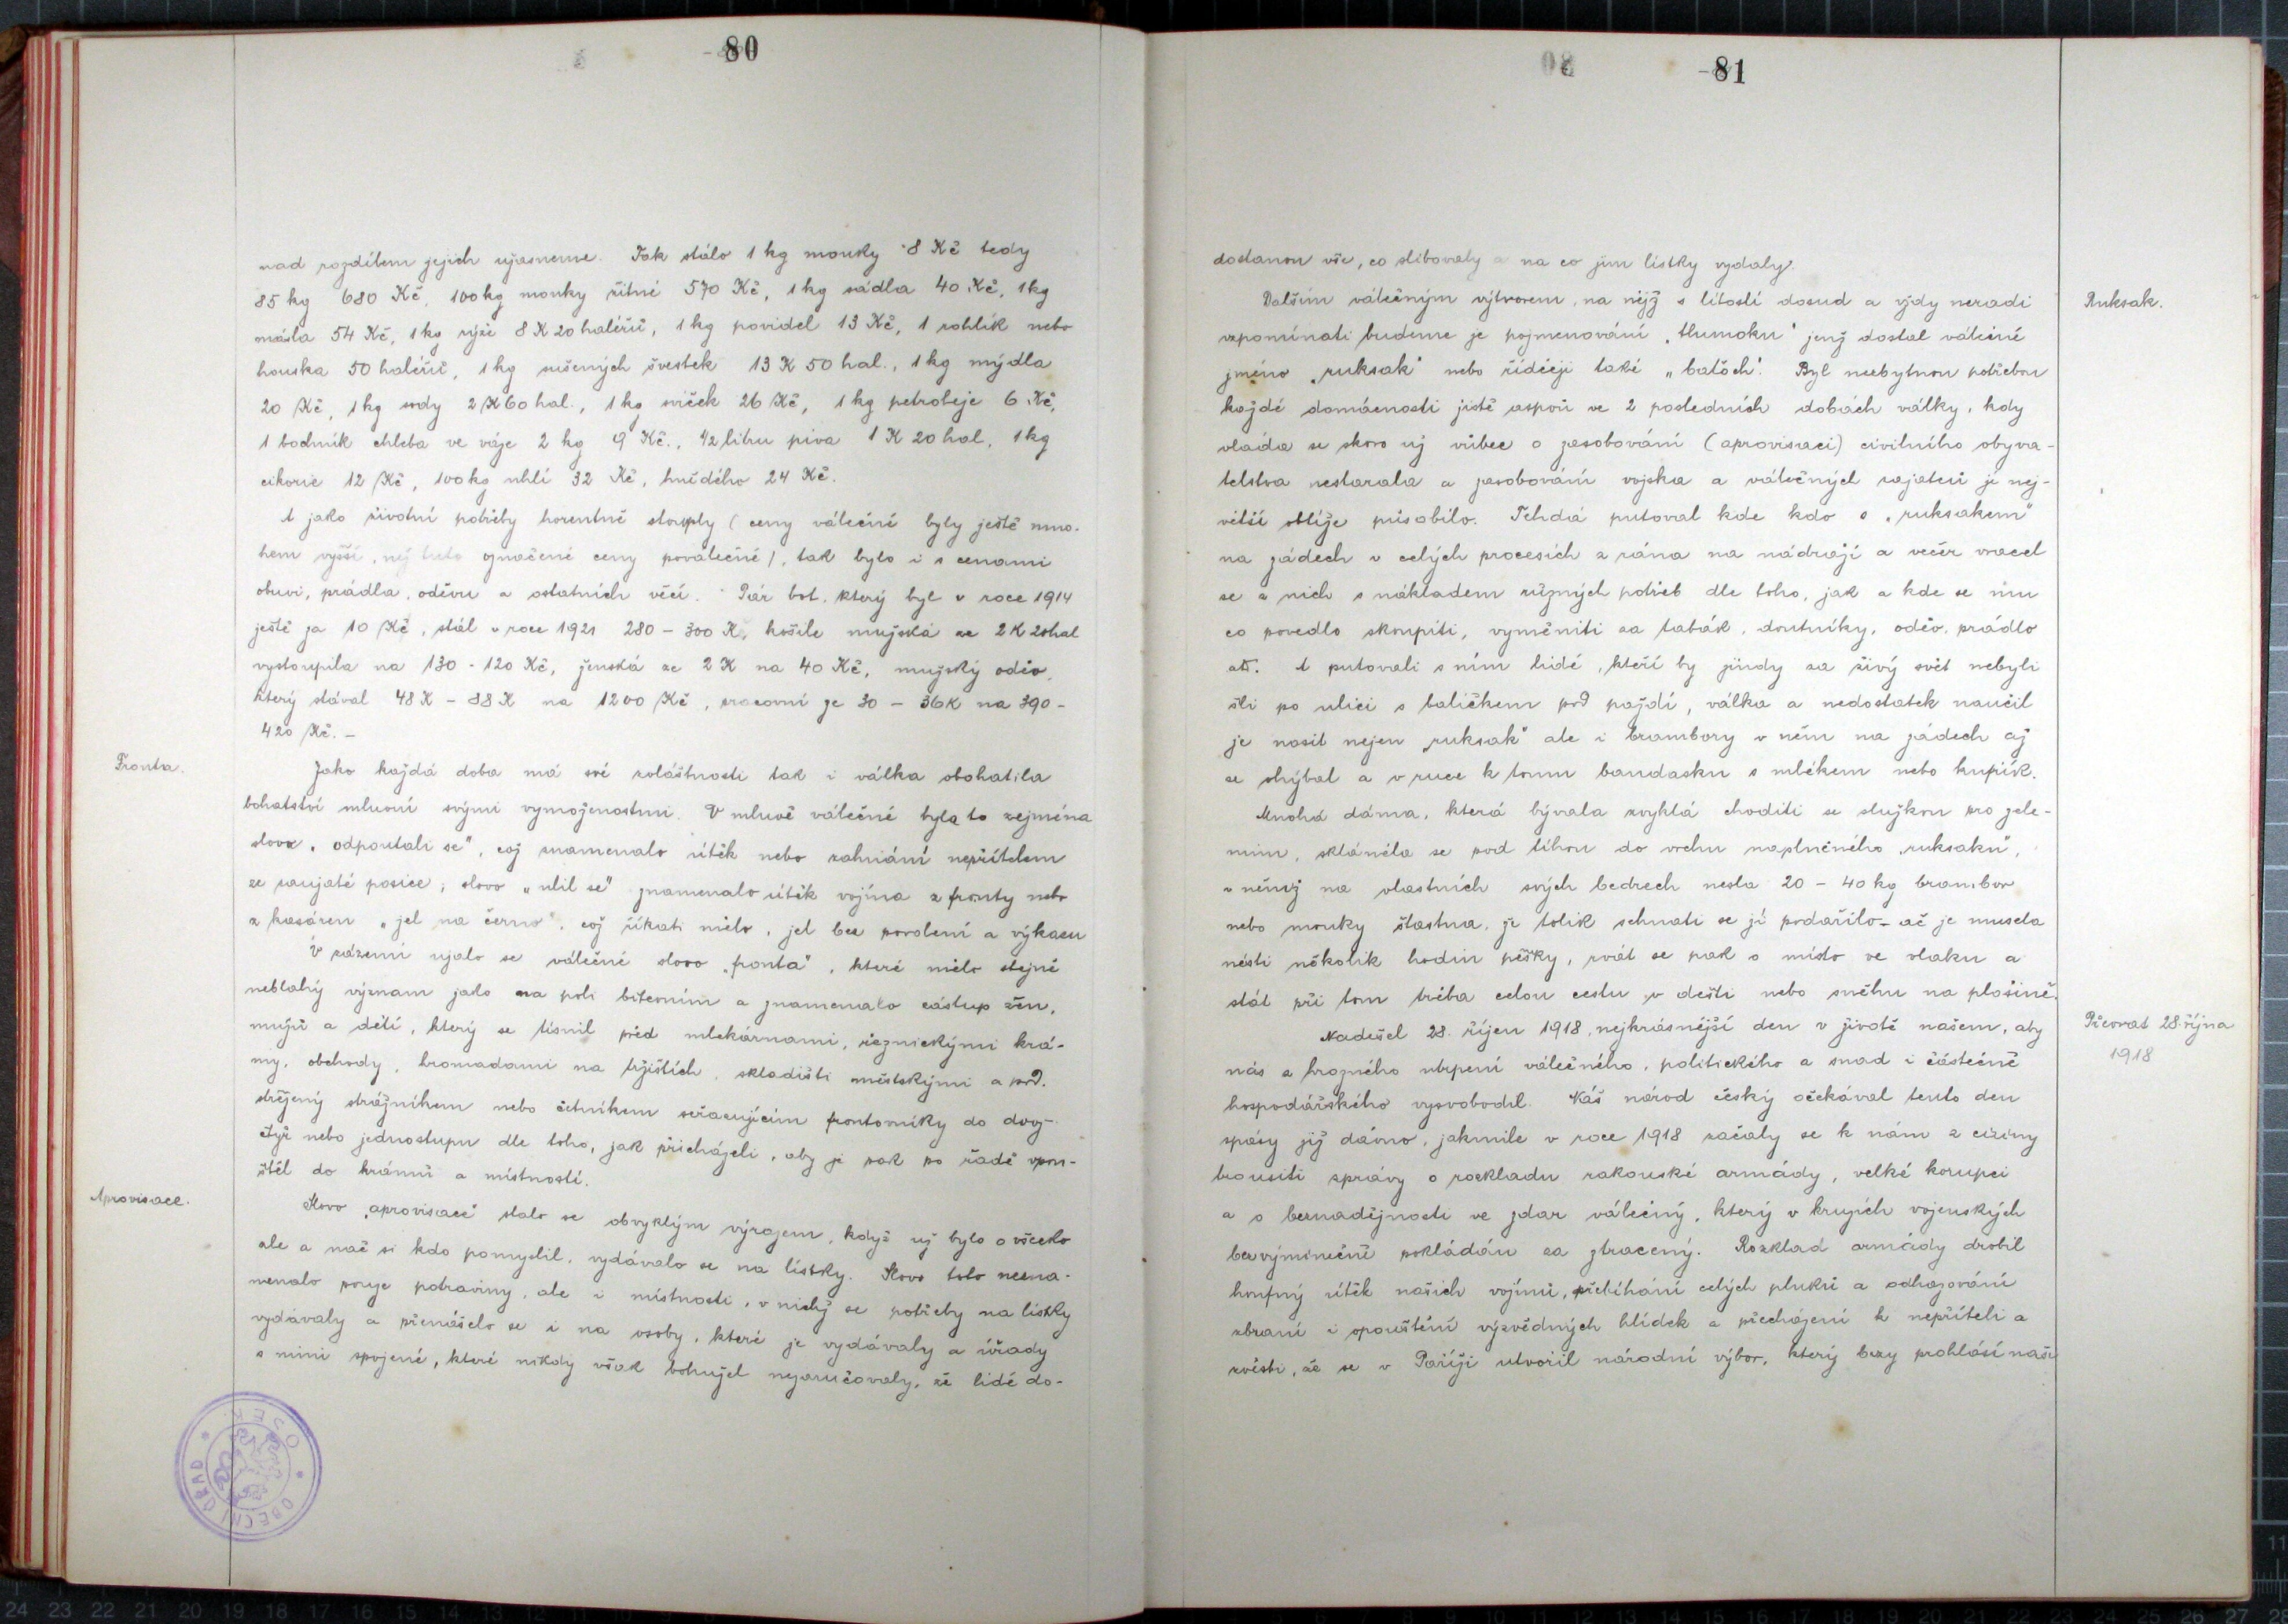 80
nad rozdílem jejich užasneme. Tak stálo 1 kg mouky 8 Kč tedy
85 kg 680 Kč, 100 kg mouky žitné 570 Kč, 1 kg sádla 40 Kč, 1 kg
másla 54 Kč, 1 kg rýže 8 K 20 haléřů, 1 kg povidel 13 Kč, 1 rohlík nebo
houska 50 haléřů, 1 kg sušených švestek 13 K 50 hal., 1 kg mýdla
20 Kč, 1 kg sody 2 K 60 hal., 1 kg svíček 26 Kč, 1 kg petroleje 6 Kč,
1 bochník chleba ve váze 2 kg 9 Kč., 1/2 litru piva 1 K 20 hal, 1 kg
cikorie 12 Kč, 100 kg uhlí 32 Kč, hnědého 24 Kč.
A jako životní potřeby horentně stouply (ceny válečné byly ještě mno-
hem vyšší, než tuto označené ceny poválečné), tak bylo i s cenami
obuvi, prádla, oděvu a ostatních věcí. Pár bot, který byl v roce 1914
ještě za 10 Kč, stál v roce 1921 280 - 300 K, košile mužská ze 2 K 20 hal
vystoupila na 130 - 120 Kč, ženská ze 2 K na 40 Kč, mužský oděv,
který stával 48 K - 88 K na 1200 Kč, pracovní ze 30 - 36 K na 390 -
420 Kč. -
Fronta.
Jako každá doba má své zvláštnosti tak i válka obohatila
bohatství mluvní svými vymoženostmi. V mluvě válečné byla to zejména
slova „odpoutali se", což znamenalo útěk nebo zahnání nepřítelem
ze zaujaté posice; slovo „ulil se" znamenalo útěk vojína z fronty nebo
z kasáren „jel na černo", což říkati mělo, jel bez povolení a výkazu
V zázemí ujalo se válečné slovo „fronta", které mělo stejně
neblahý význam jako na poli bitevním a znamenalo zástup žen,
mužů a dětí, který se tísnil před mlékárnami, řeznickými krá-
my, obchody, hromadami na tržištích, skladišti městskými a pod.
střežený strážníkem nebo četníkem seřazujícím frontovníky do dvoj-
čtyř nebo jednostupu dle toho, jak přicházeli, aby je pak po řadě vpou-
štěl do krámů a místností.
Aprovisace.
Slovo „aprovisace" stalo se obvyklým výrazem, když už bylo o všecko
ale a nač si kdo pomyslil, vydávalo se na lístky. Slovo toto nezna-
menalo pouze potraviny, ale i místnosti, v nichž se potřeby na lístky
vydávaly a přenášelo se i na osoby, které je vydávaly a úřady
s nimi spojené, které nikdy však bohužel nezaručovaly, že lidé do-
OBECNÍ ÚŘAD
OSEK
81
dostanou vše, co slibovaly a na co jim lístky vydaly.
Ruksak.
Dalším válečným výtvorem, na nějž s lítostí dosud a vždy neradi
vzpomínati budeme je pojmenování „tlumoku" jenž dostal válečné
jméno „ruksak" nebo řidčeji také „batöch". Byl nezbytnou potřebou
každé domácnosti jistě aspoň ve 2 posledních dobách války, kdy
vláda se skoro už vůbec o zásobování (aprovisaci) civilního obyva-
telstva nestarala a zásobování vojska a válečných zajatců jí nej-
větší obtíže působilo. Tehdá putoval kde kdo s „ruksakem"
na zádech v celých procesích z rána na nádraží a večer vracel
se z nich s nákladem různých potřeb dle toho, jak a kde se mu
co povedlo skoupiti, vyměniti za tabák, doutníky, oděv, prádlo
atd. A putovali s ním lidé, kteří by jindy za živý svět nebyli
šli po ulici s balíčkem pod paždí, válka a nedostatek naučil
je nosit nejen „ruksak" ale i brambory v něm na zádech až
se ohýbal a v ruce k tomu bandasku s mlékem nebo kupík.
Mnohá dáma, která bývala zvyklá choditi se služkou pro zele-
ninu, skláněla se pod tíhou do vrchu naplněného „ruksaku",
v němž na vlastních svých bedrech nesla 20 - 40 kg brambor
nebo mouky šťastna, že tolik sehnati se jí podařilo - ač je musela
nésti několik hodin pěšky, rvát se pak o místo ve vlaku a
stát při tom třeba celou cestu v dešti nebo sněhu na plošině.
Převrat 28. října
1918
Nadešel 28. říjen 1918, nejkrásnější den v životě našem, aby
nás z hrozného utrpení válečného, politického a snad i částečně
hospodářského vysvobodil. Náš národ český očekával tento den
spásy již dávno, jakmile v roce 1918 začaly se k nám z ciziny
trousiti zprávy o rozkladu rakouské armády, velké korupci
a o beznadějnosti ve zdar válečný, který v kruzích vojenských
bezvýminečně pokládán za ztracený. Rozklad armády drobil
houfný útěk našich vojínů, přebíhání celých pluků a odhazování
zbraní i opouštění výzvědných hlídek a přecházení k nepříteli a
zvěsti, že se v Paříži utvořil národní výbor, který brzy prohlásí naši